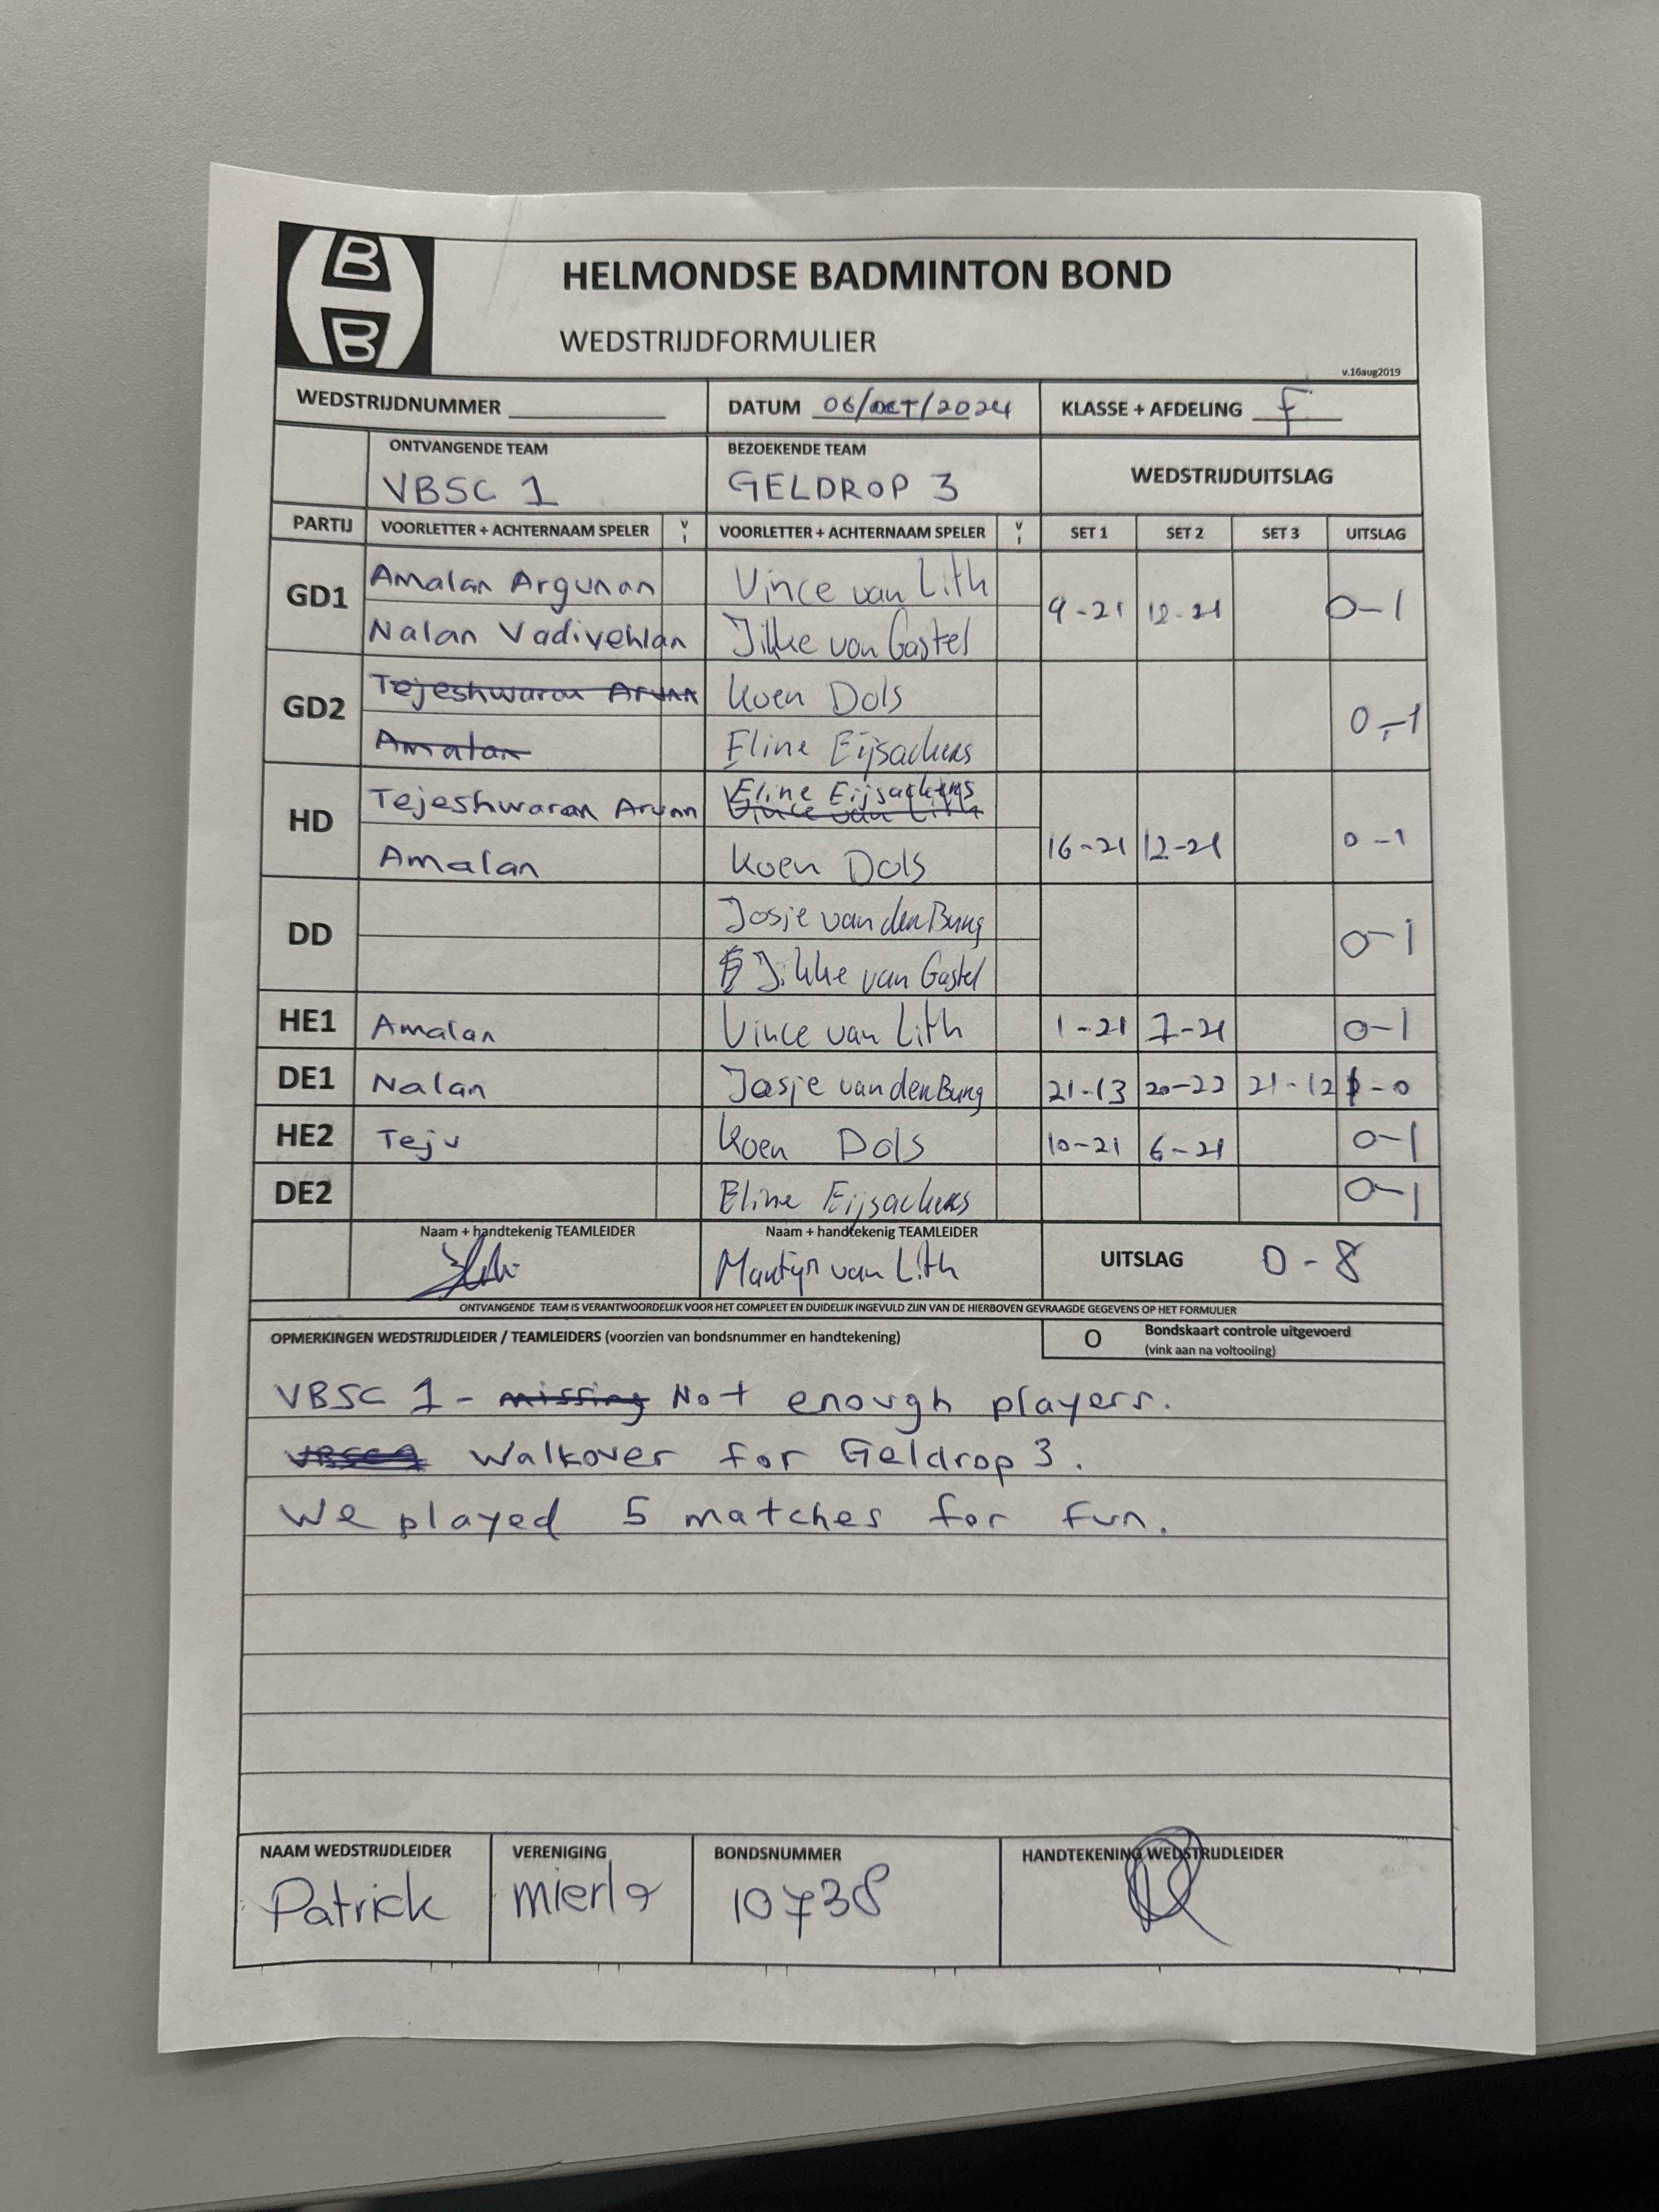 B
B
HELMONDSE BADMINTON BOND
WEDSTRIJDFORMULIER
v.16aug2019
WEDSTRIJDNUMMER DATUM 06/OCT/2024 KLASSE + AFDELING F
ONTVANGENDE TEAM BEZOEKENDE TEAM WEDSTRIJDUITSLAG
VBSC 1 GELDROP 3
PARTIJ VOORLETTER + ACHTERNAAM SPELER V I VOORLETTER + ACHTERNAAM SPELER V I SET 1 SET 2 SET 3 UITSLAG
GD1 Amalan Argunan Vince van Lith 9-21 12-21 0-1
Nalan Vadivehlan Jikke van Gastel
GD2 Tejeshwaran Arunn Koen Dols 0-1
Amalan Eline Eijsackers
HD Tejeshwaran Arunn Eline Eijsackers
Vince van Lith
Amalan Koen Dols 16-21 12-21 0-1
DD Josje van den Bung 0-1
Jikke van Gastel
HE1 Amalan Vince van Lith 1-21 7-21 0-1
DE1 Nalan Josje van den Bung 21-13 20-22 21-12 1-0
HE2 Teju Koen Dols 10-21 6-21 0-1
DE2 Eline Eijsackers 0-1
Naam + handtekenig TEAMLEIDER Naam + handtekenig TEAMLEIDER
Martijn van Lith UITSLAG 0-8
ONTVANGENDE TEAM IS VERANTWOORDELIJK VOOR HET COMPLEET EN DUIDELIJK INGEVULD ZIJN VAN DE HIERBOVEN GEVRAAGDE GEGEVENS OP HET FORMULIER
OPMERKINGEN WEDSTRIJDLEIDER / TEAMLEIDERS (voorzien van bondsnummer en handtekening) O Bondskaart controle uitgevoerd
(vink aan na voltooiing)
VBSC 1 - missing Not enough players.
VBSC 1 Walkover for Geldrop 3.
We played 5 matches for fun.
NAAM WEDSTRIJDLEIDER VERENIGING BONDSNUMMER HANDTEKENING WEDSTRIJDLEIDER
Patrick mierlo 10738